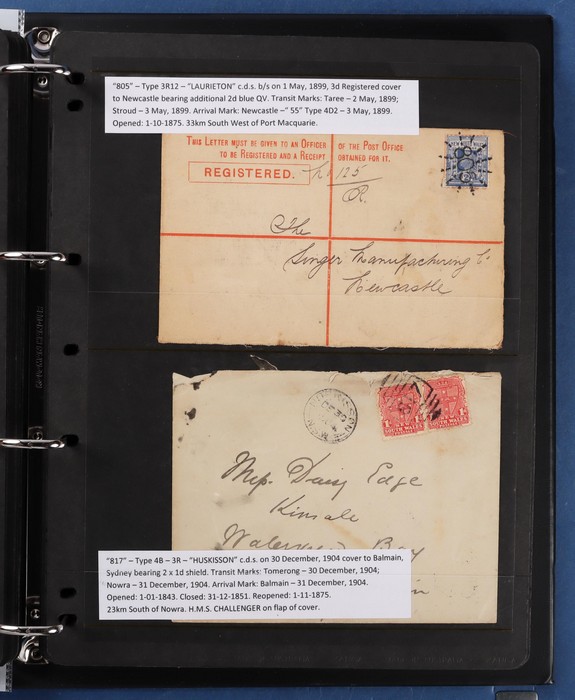 "805" – Type 3R12 – "LAURIETON" c.d.s. b/s on 1 May, 1899, 3d Registered cover
to Newcastle bearing additional 2d blue QV. Transit Marks: Taree – 2 May, 1899;
Stroud – 3 May, 1899. Arrival Mark: Newcastle –" 55" Type 4D2 – 3 May, 1899.
Opened: 1-10-1875. 33km South West of Port Macquarie.
THIS LETTER MUST BE GIVEN TO AN OFFICER OF THE POST OFFICE
TO BE REGISTERED AND A RECEIPT OBTAINED FOR IT.
REGISTERED. 125
R.
The
Singer Manufacturing Co
Newcastle
Miss Daisy Edge
Kinsale
Waterview Bay
"817" – Type 4B – 3R – "HUSKISSON" c.d.s. on 30 December, 1904 cover to Balmain,
Sydney bearing 2 x 1d shield. Transit Marks: Tomerong – 30 December, 1904;
Nowra – 31 December, 1904. Arrival Mark: Balmain – 31 December, 1904.
Opened: 1-01-1843. Closed: 31-12-1851. Reopened: 1-11-1875.
23km South of Nowra. H.M.S. CHALLENGER on flap of cover.